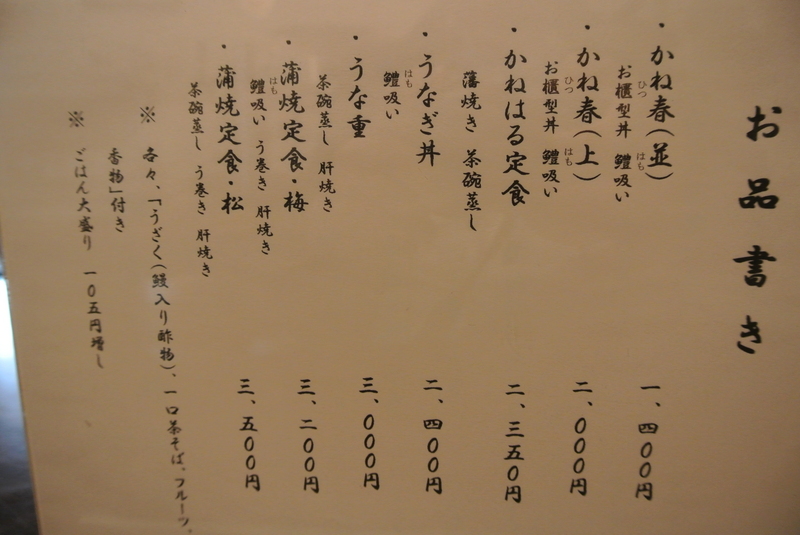 お品書き
・かね春(並) 一、四〇〇円
お櫃型丼 鱧吸い
・かね春(上) 二、〇〇〇円
お櫃型丼 鱧吸い
・かねはる定食 二、三五〇円
藩焼き 茶碗蒸し
・うなぎ丼 二、四〇〇円
鱧吸い
・うな重 三、〇〇〇円
茶碗蒸し 肝焼き
・蒲焼定食・梅 三、二〇〇円
鱧吸い う巻き 肝焼き
・蒲焼定食・松 三、五〇〇円
茶碗蒸し う巻き 肝焼き
※ 各々、「うざく(鰻入り酢物)、一口茶そば、フルーツ、
香物」付き
※ ごはん大盛り 一〇五円増し